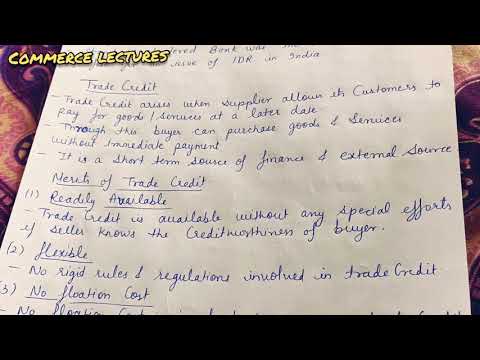 COMMERCE LECTURES
Bank was the
issue of IDR in India
Trade Credit
- Trade Credit arises when supplier allows its Customers to
Pay for goods/services at a later date
- Through this buyer can purchase goods & Services
without immediate payment
- It is a short term source of finance & external source
Merits of Trade Credit
(1) Readily Available
- Trade Credit is available without any special efforts
if seller knows the Creditworthiness of buyer.
(2) flexible
- No rigid rules & regulations involved in trade Credit
(3) No floation Cost
- No floation Cost